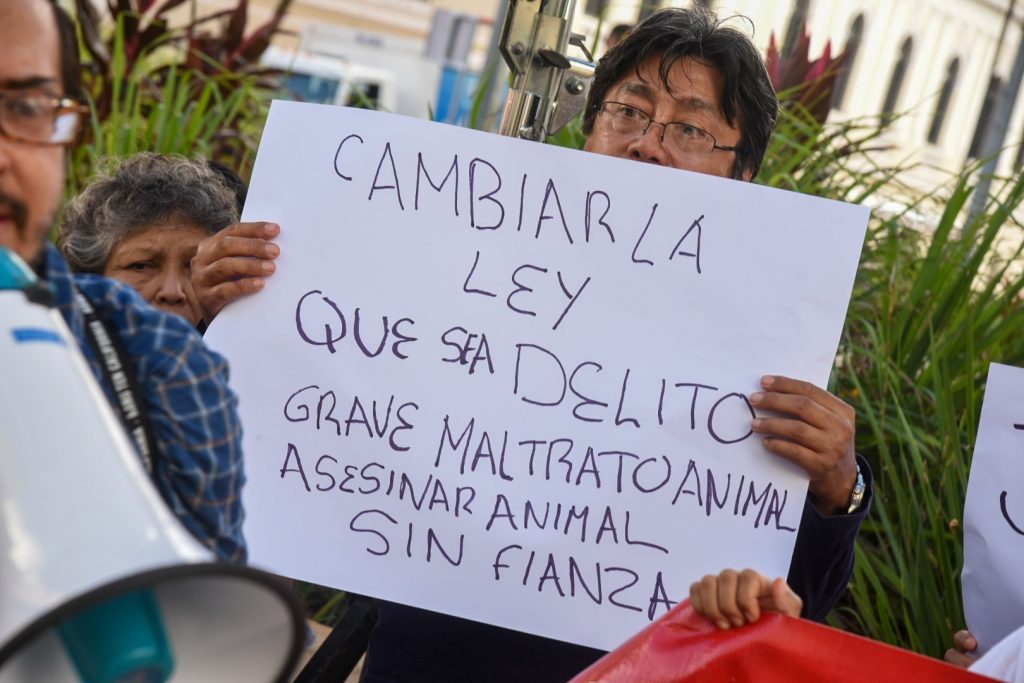 CAMBIAR LA
LEY
QUE SEA DELITO
GRAVE MALTRATO ANIMAL
ASESINAR ANIMAL
SIN FIANZA